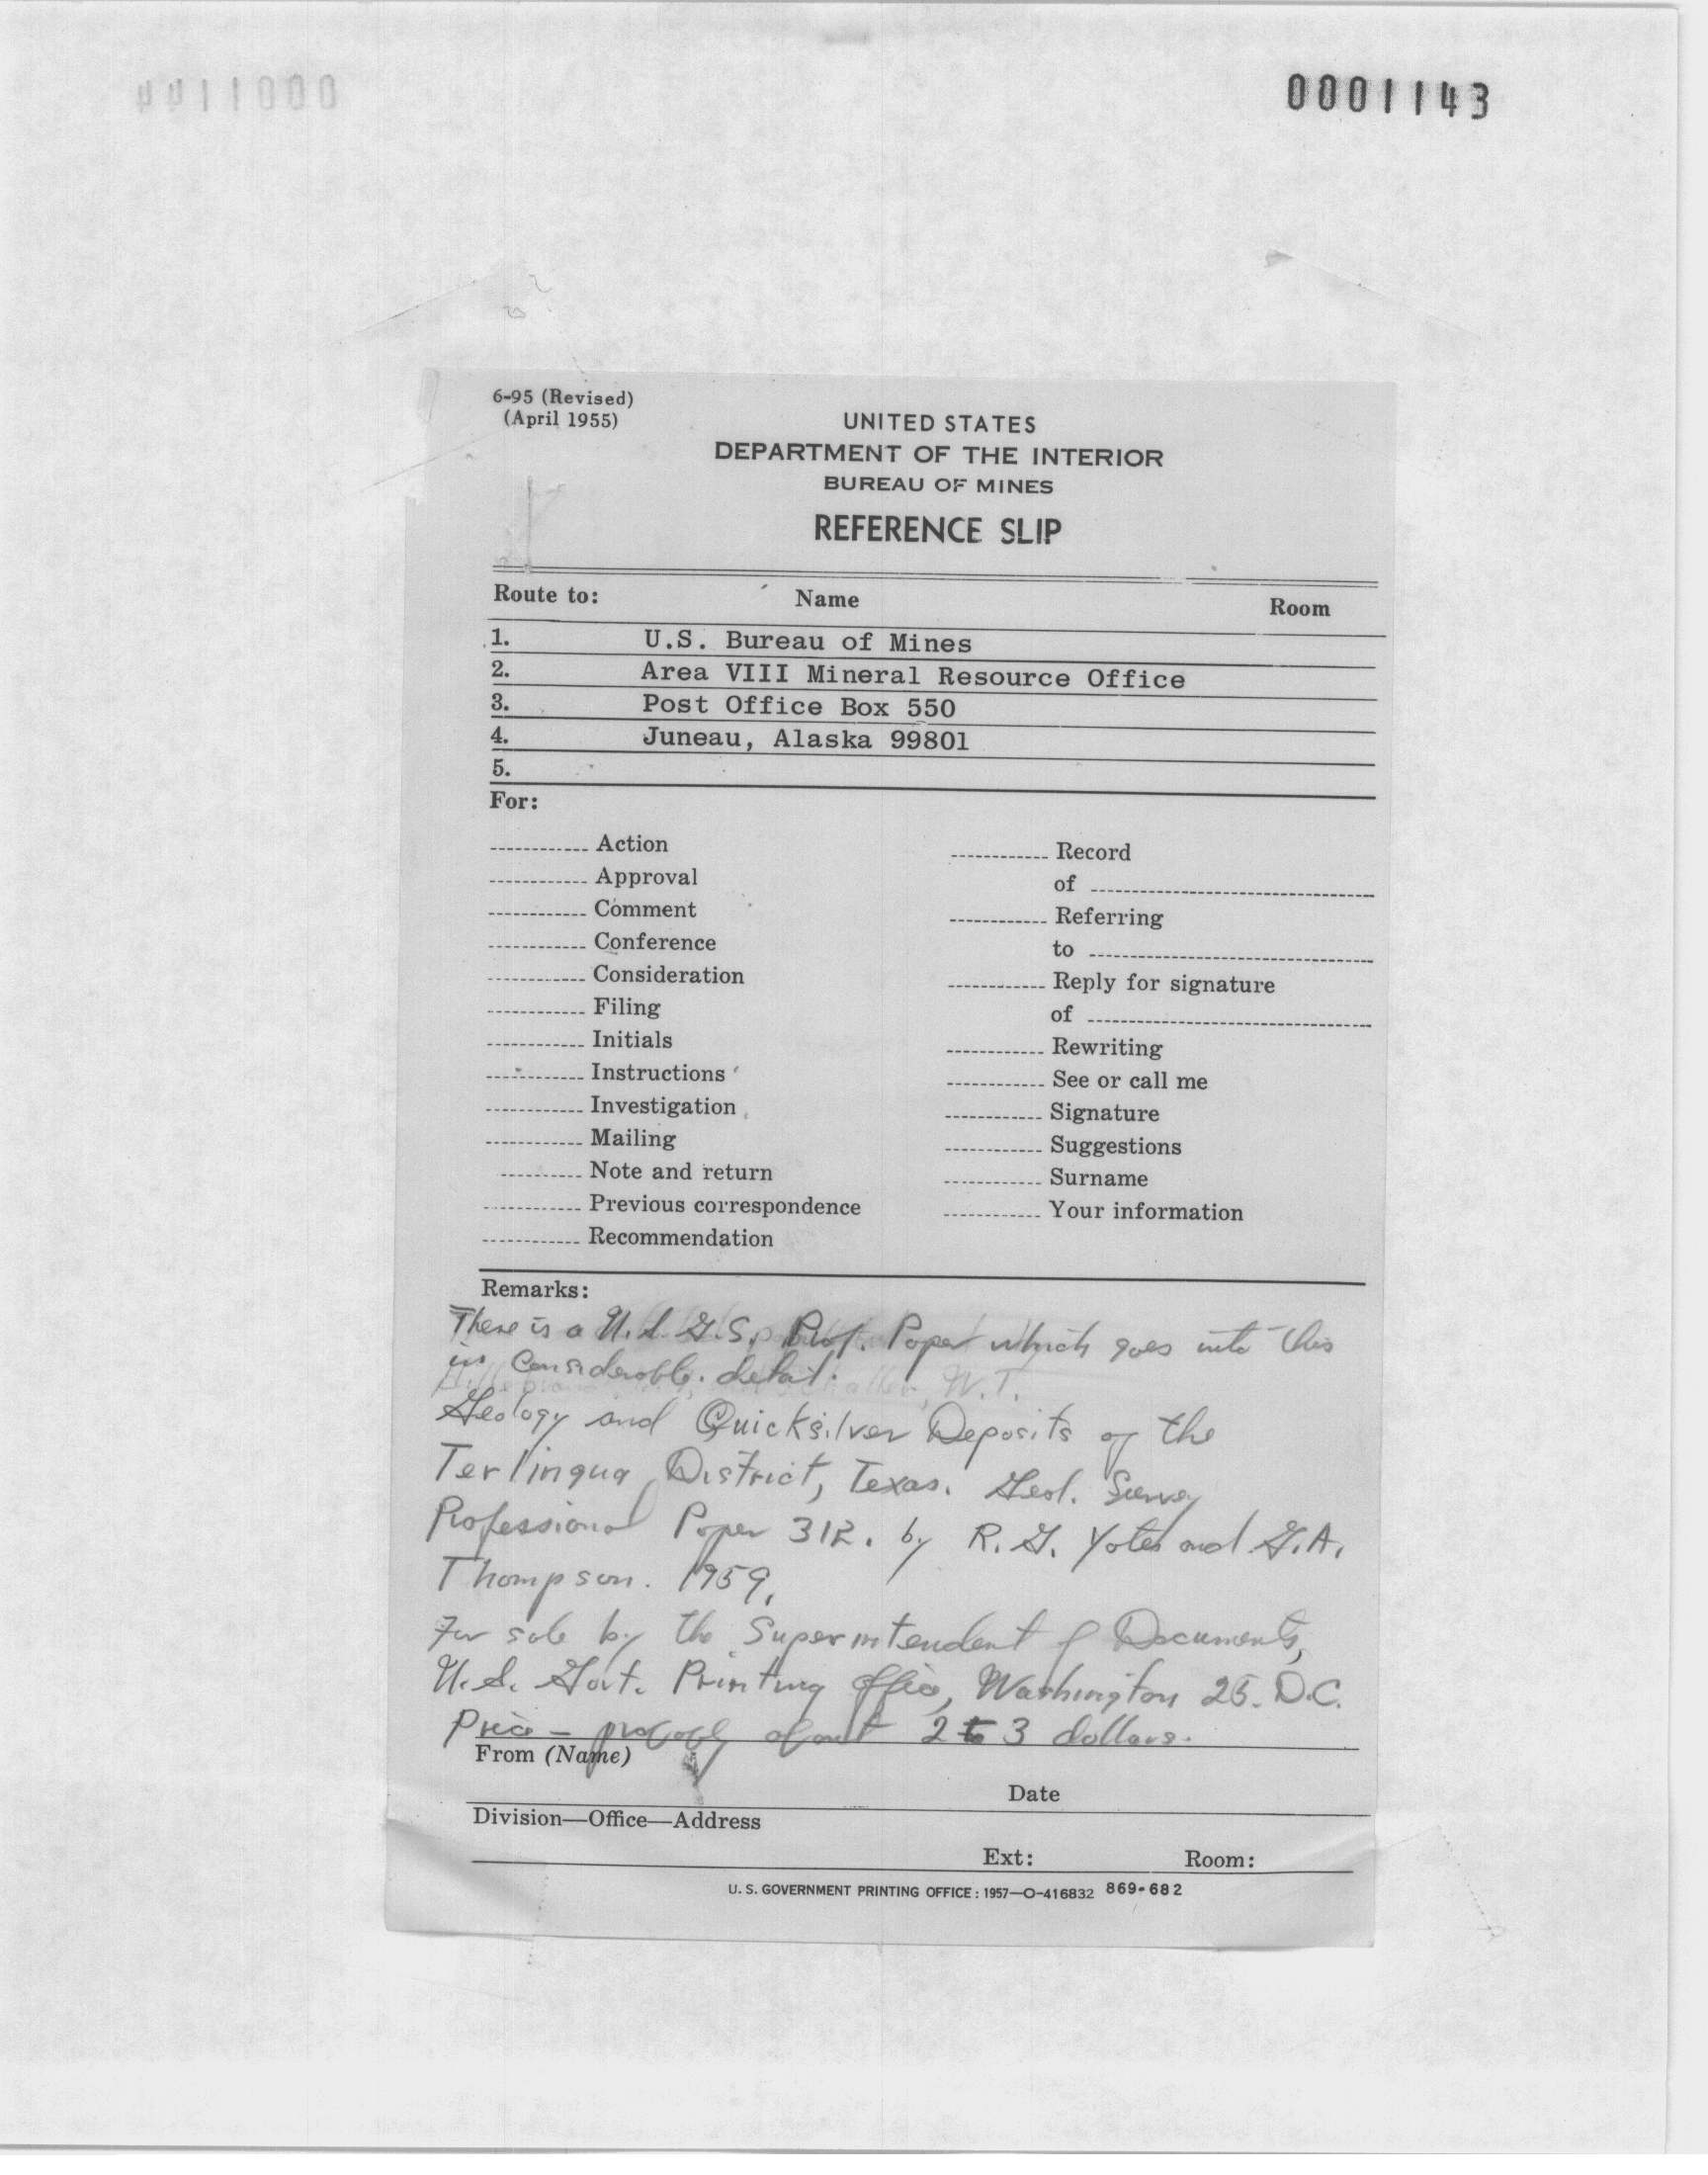 0001143
6-95 (Revised)
(April 1955)
UNITED STATES
DEPARTMENT OF THE INTERIOR
BUREAU OF MINES
REFERENCE SLIP
Route to: Name Room
1. U.S. Bureau of Mines
2. Area VIII Mineral Resource Office
3. Post Office Box 550
4. Juneau, Alaska 99801
5.
For:
Action
Approval
Comment
Conference
Consideration
Filing
Initials
Instructions
Investigation
Mailing
Note and return
Previous correspondence
Recommendation
Record
of
Referring
to
Reply for signature
of
Rewriting
See or call me
Signature
Suggestions
Surname
Your information
Remarks:
There is a U.S.G.S. Prof. Paper which goes into this
in considerable detail.
W.T.
Geology and Quicksilver Deposits of the
Terlingua District, Texas. Geol. Survey
Professional Paper 312. by R.G. Yates and G.A.
Thompson. 1959.
For sale by the Superintendent of Documents,
U.S. Govt. Printing Office, Washington 25. D.C.
Price - probably about 2 to 3 dollars.
From (Name)
Date
Division—Office—Address
Ext: Room:
U. S. GOVERNMENT PRINTING OFFICE : 1957—O-416832 869-682